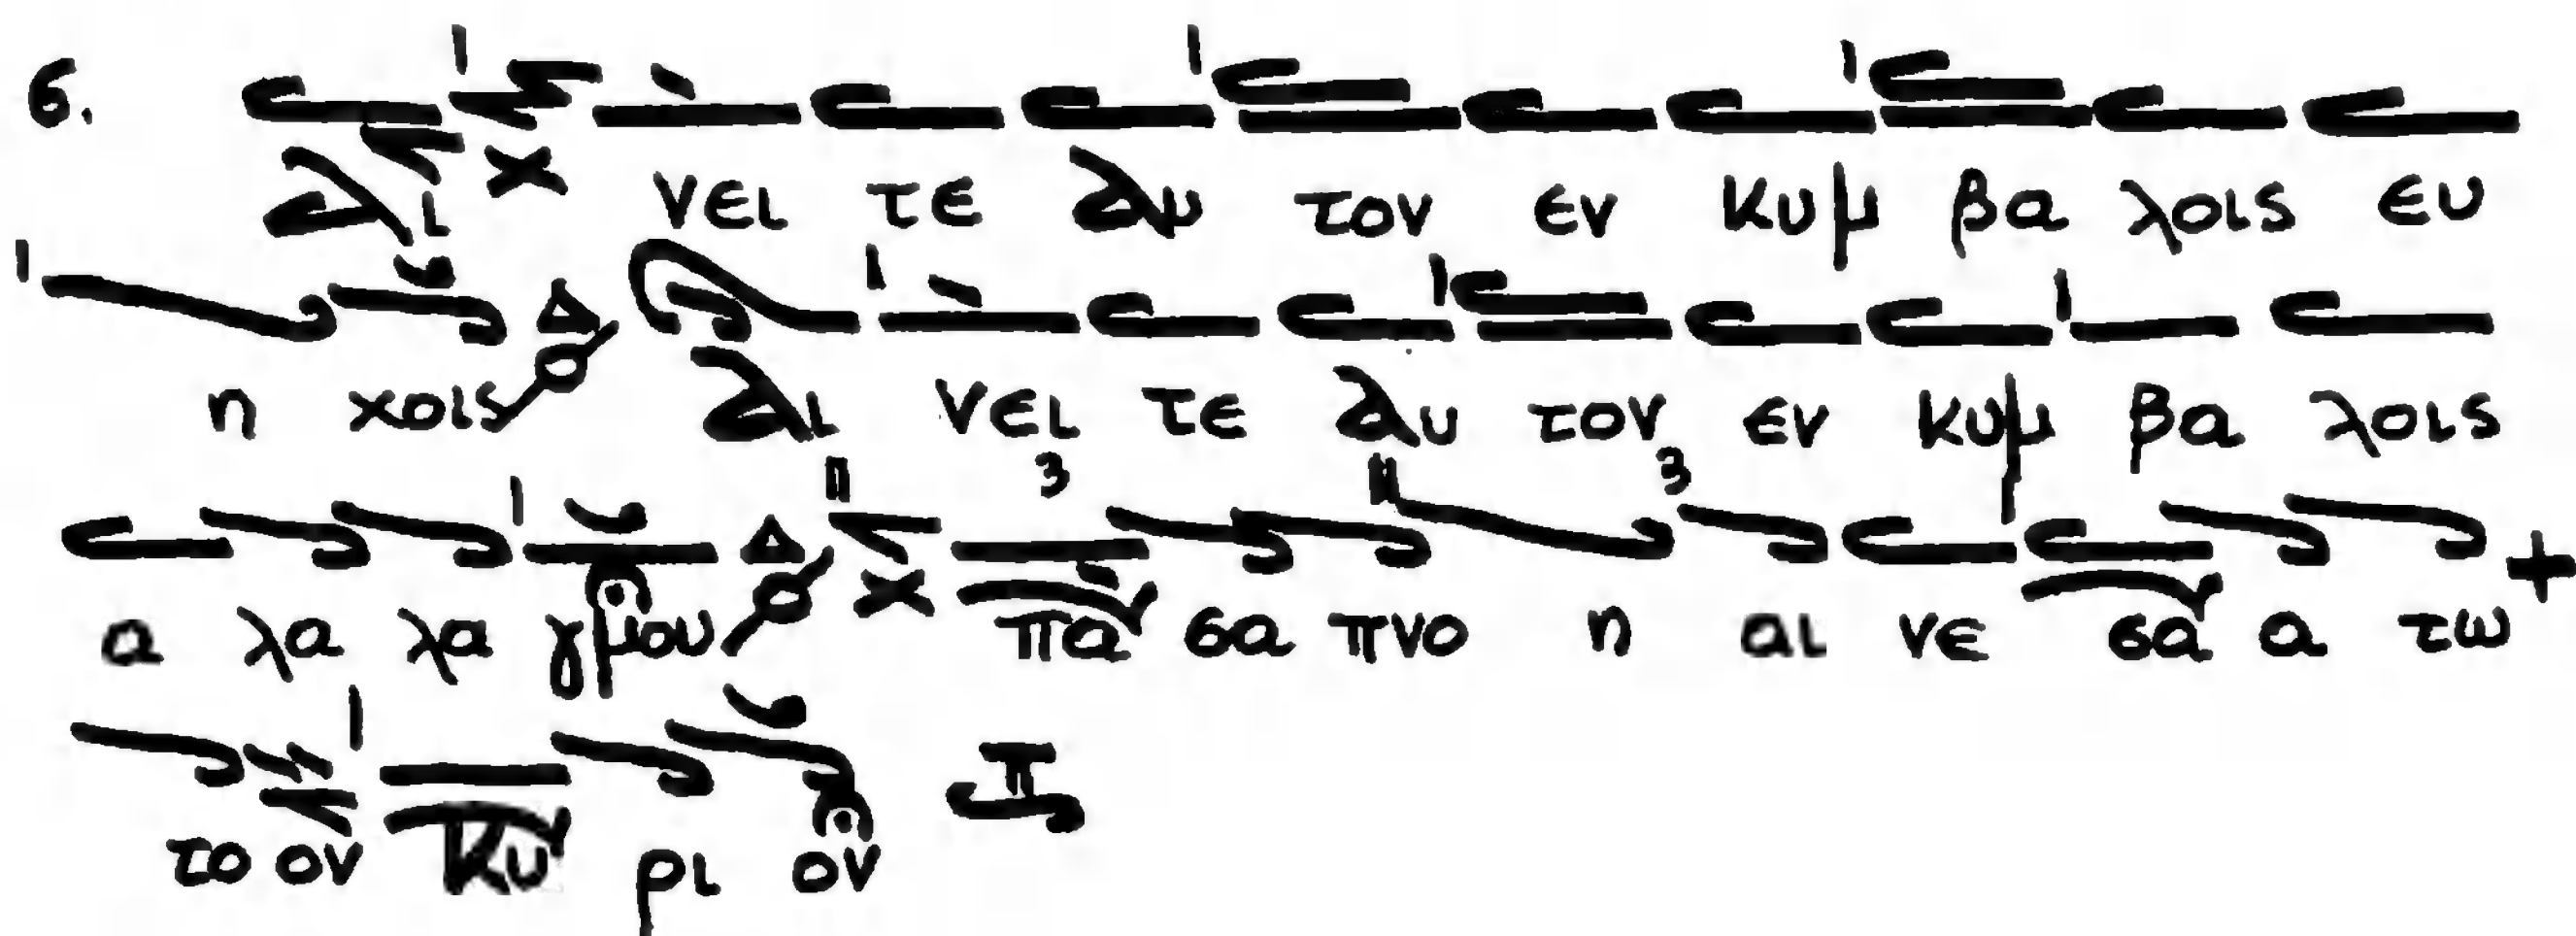 6.
αι νει τε αυ τον εν κυμ βα λοις ευ
η χοις Δ αι νει τε αυ τον εν κυμ βα λοις
α λα λα γμου Δ πα σα πνο η αι νε σα α τω
το ον Κυ ρι ον π